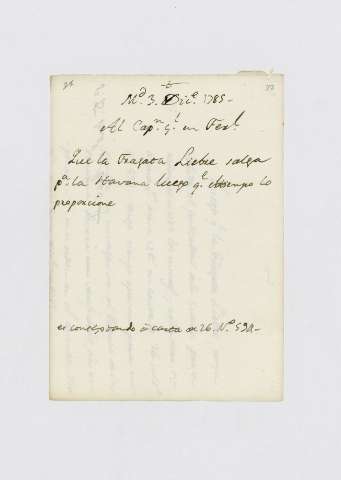 Md. 3. Dice. 1785.
Al Capn. gl. en Ferl.
Que la Fragata Liebre salga
pa. la Havana luego qe. el tiempo lo
proporcione
es contestando à carta de 26. No.